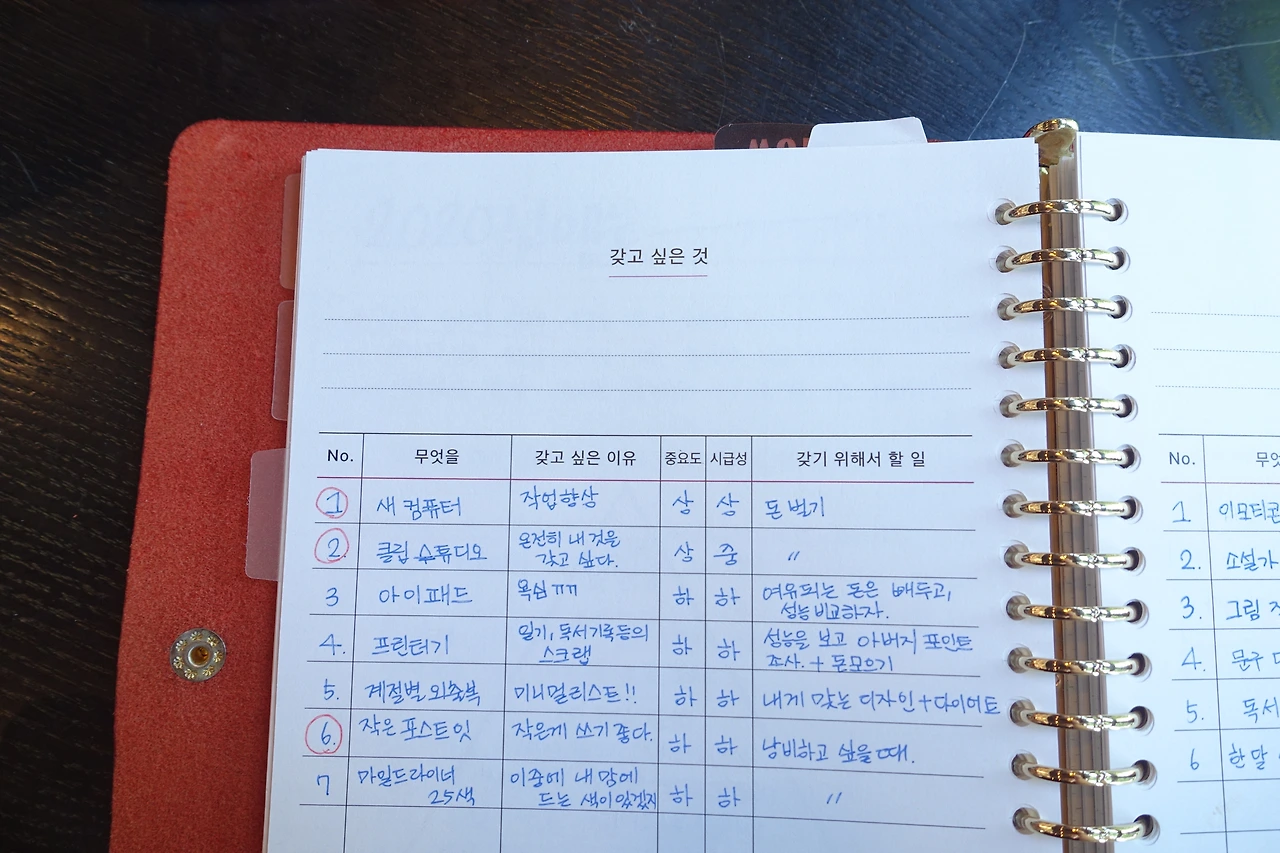 갖고 싶은 것
No. 무엇을 갖고 싶은 이유 중요도 시급성 갖기 위해서 할 일
1 새 컴퓨터 작업향상 상 상 돈 벌기
2. 클립 스튜디오 온전히 내 것을 상 중 〃
갖고 싶다.
3 아이패드 욕심ㅠㅠ 하 하 여유되는 돈은 빼두고,
성능비교하자.
4. 프린터기 일기, 독서기록등의 하 하 성능을 보고 아버지 포인트
스크랩 조사. + 돈모으기
5. 계절별 외출복 미니멀리스트!! 하 하 내게 맞는 디자인+다이어트
6. 작은 포스트잇 작은게 쓰기 좋다. 하 하 낭비하고 싶을 때.
7 마일드라이너 이중에 내 맘에 하 하 〃
25색 드는 색이 있겠지
No. 무엇
1 이모티콘
2. 소설가
3. 그림
4. 문구
5. 독서
6 한 달